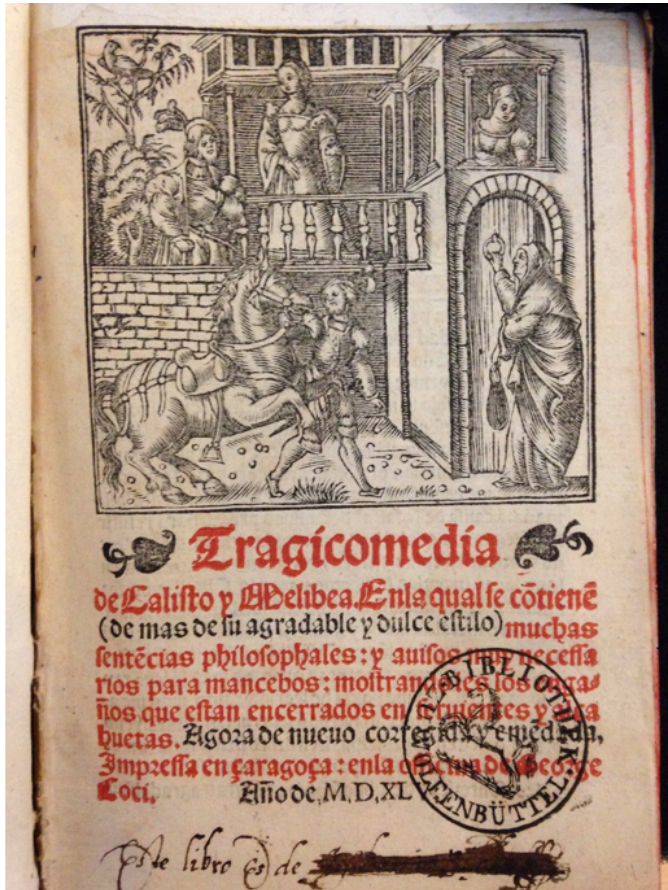 Tragicomedia
de Calisto y Melibea. Enla qual se cõtienẽ
(de mas de su agradable y dulce estilo) muchas
sentẽcias philosophales: y auisos necessa
rios para mancebos: mostrandoles los enga-
ños que estan encerrados en siruientes y alca
huetas. Agora de nueuo corregida y emẽdada,
Impressa en çaragoça: enla officina de George
Coci. Año de, M.D.XL
BIBLIOTHEK WOLFENBÜTTEL
Este libro es de